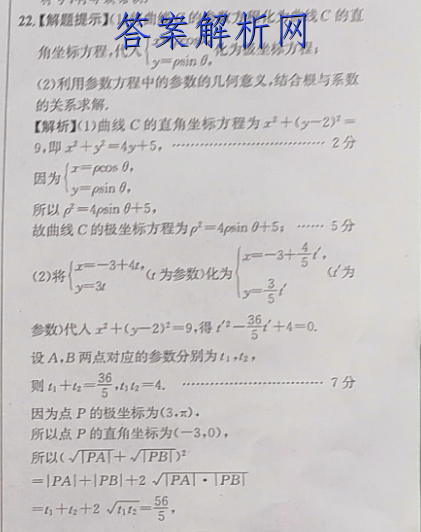 22.【解题提示】(1) 的参数方程化为曲线C的直
答案解析网
角坐标方程,代入 化为极坐标方程;
y=ρsin θ,
(2)利用参数方程中的参数的几何意义,结合根与系数
的关系求解.
【解析】(1)曲线C的直角坐标方程为x²+(y-2)²=
9,即x²+y²=4y+5, …………………………… 2分
因为{x=ρcos θ,
y=ρsin θ,
所以ρ²=4ρsin θ+5,
故曲线C的极坐标方程为ρ²=4ρsin θ+5; …… 5分
(2)将{x=-3+4t, y=3t (t为参数)化为{x=-3+4/5t′, y=3/5t′ (t′为
参数)代入x²+(y-2)²=9,得t′²-36/5t′+4=0.
设A,B两点对应的参数分别为t₁,t₂,
则t₁+t₂=36/5,t₁t₂=4. ………………………… 7分
因为点P的极坐标为(3,π),
所以点P的直角坐标为(-3,0),
所以(√|PA|+√|PB|)²
=|PA|+|PB|+2√|PA|·|PB|
=t₁+t₂+2√t₁t₂=56/5,